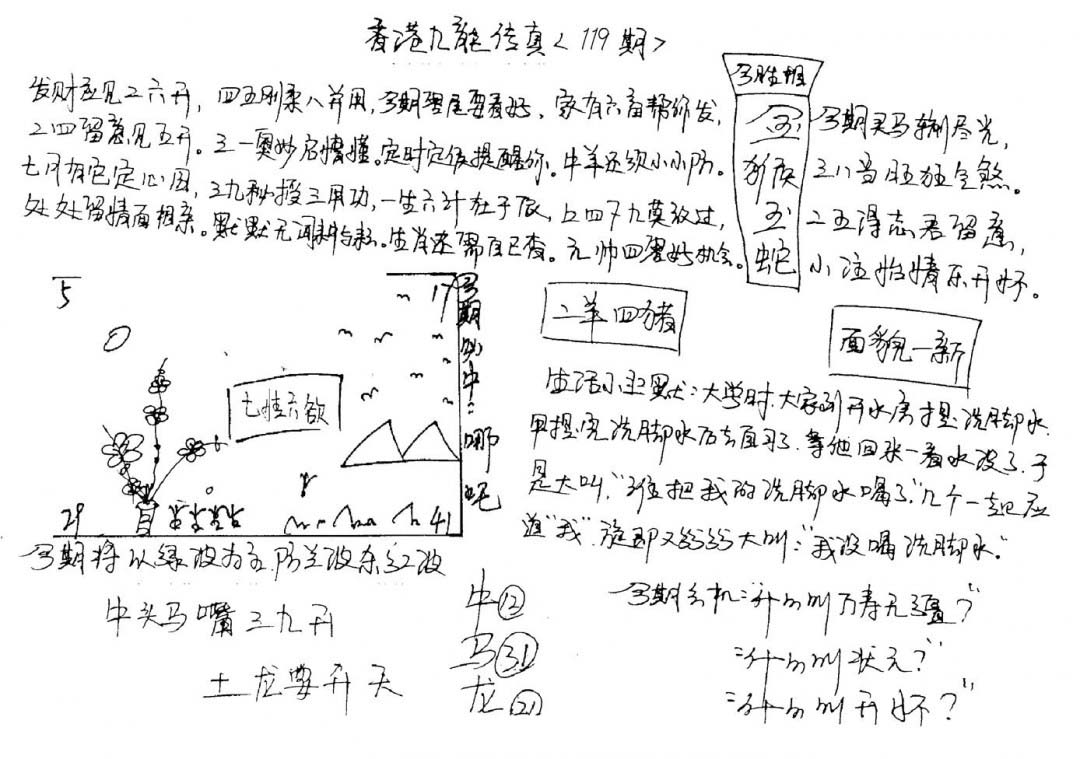 香港九龙传真<119期>
发财应见二六开，四五刚柔八并用，今期望尾要看好，家有六亩帮你发，
二四留意见五开。三一奥妙启情懂。定时定候提醒你。牛羊还须小小防。
七月有它定心田，三九秒投三用功，一生六计在于辰，上四下九莫放过，
处处留情面相亲。默默无闻。生肖还需自己查。元帅四要好机会。
今期买马输尽光，
三八当旺狂全煞。
二五得志君留意，
小注怡情乐开怀。
今胜组
玉
猴
玉
蛇
5
17
七情六欲
29
41
今期别中：哪呢
二羊四猪
面貌一新
生活小幽默：大学时，大家到开水房提洗脚水，
甲提完洗脚水后去复习了，等他回来一看水没了，于
是大叫，"谁把我的洗脚水喝了"几个一起应
道"我"，旋即又纷纷大叫："我没喝洗脚水。"
今期将以绿波为主，防兰波杀红波
牛头马嘴三九开
土龙要升天
牛⑫
马㉛
龙㉑
今期玄机："什么叫万寿无疆？"
"什么叫状元？"
"什么叫开怀？"